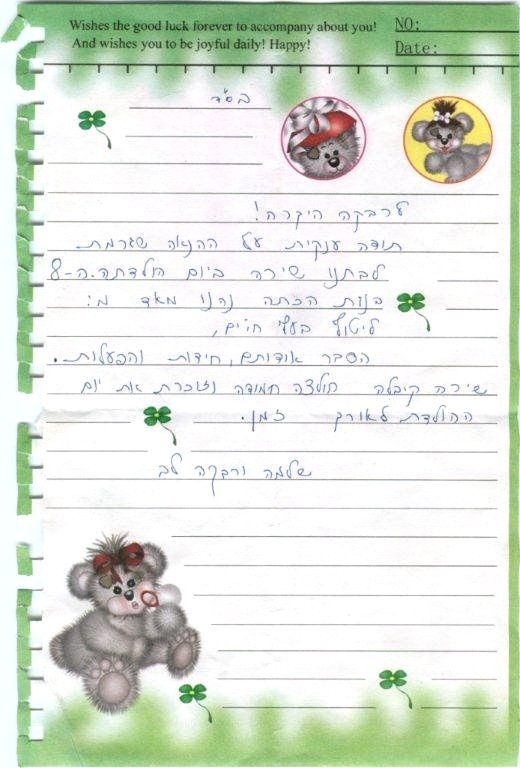 Wishes the good luck forever to accompany about you!
And wishes you to be joyful daily! Happy!
NO:
Date:
בס"ד
לרבקה היקרה!
תודה ענקית על ההנאה שגרמת
לבתנו שירה ביום הולדתה ה-8
בנות הכתה נהנו מאד מ:
ליטוף בעלי חיים,
הסבר אודותם, חידות והפעלות.
שירה קיבלה חולצה חמודה וזוכרת את יום
ההולדת לאורך זמן.
שלמה ורבקה לב